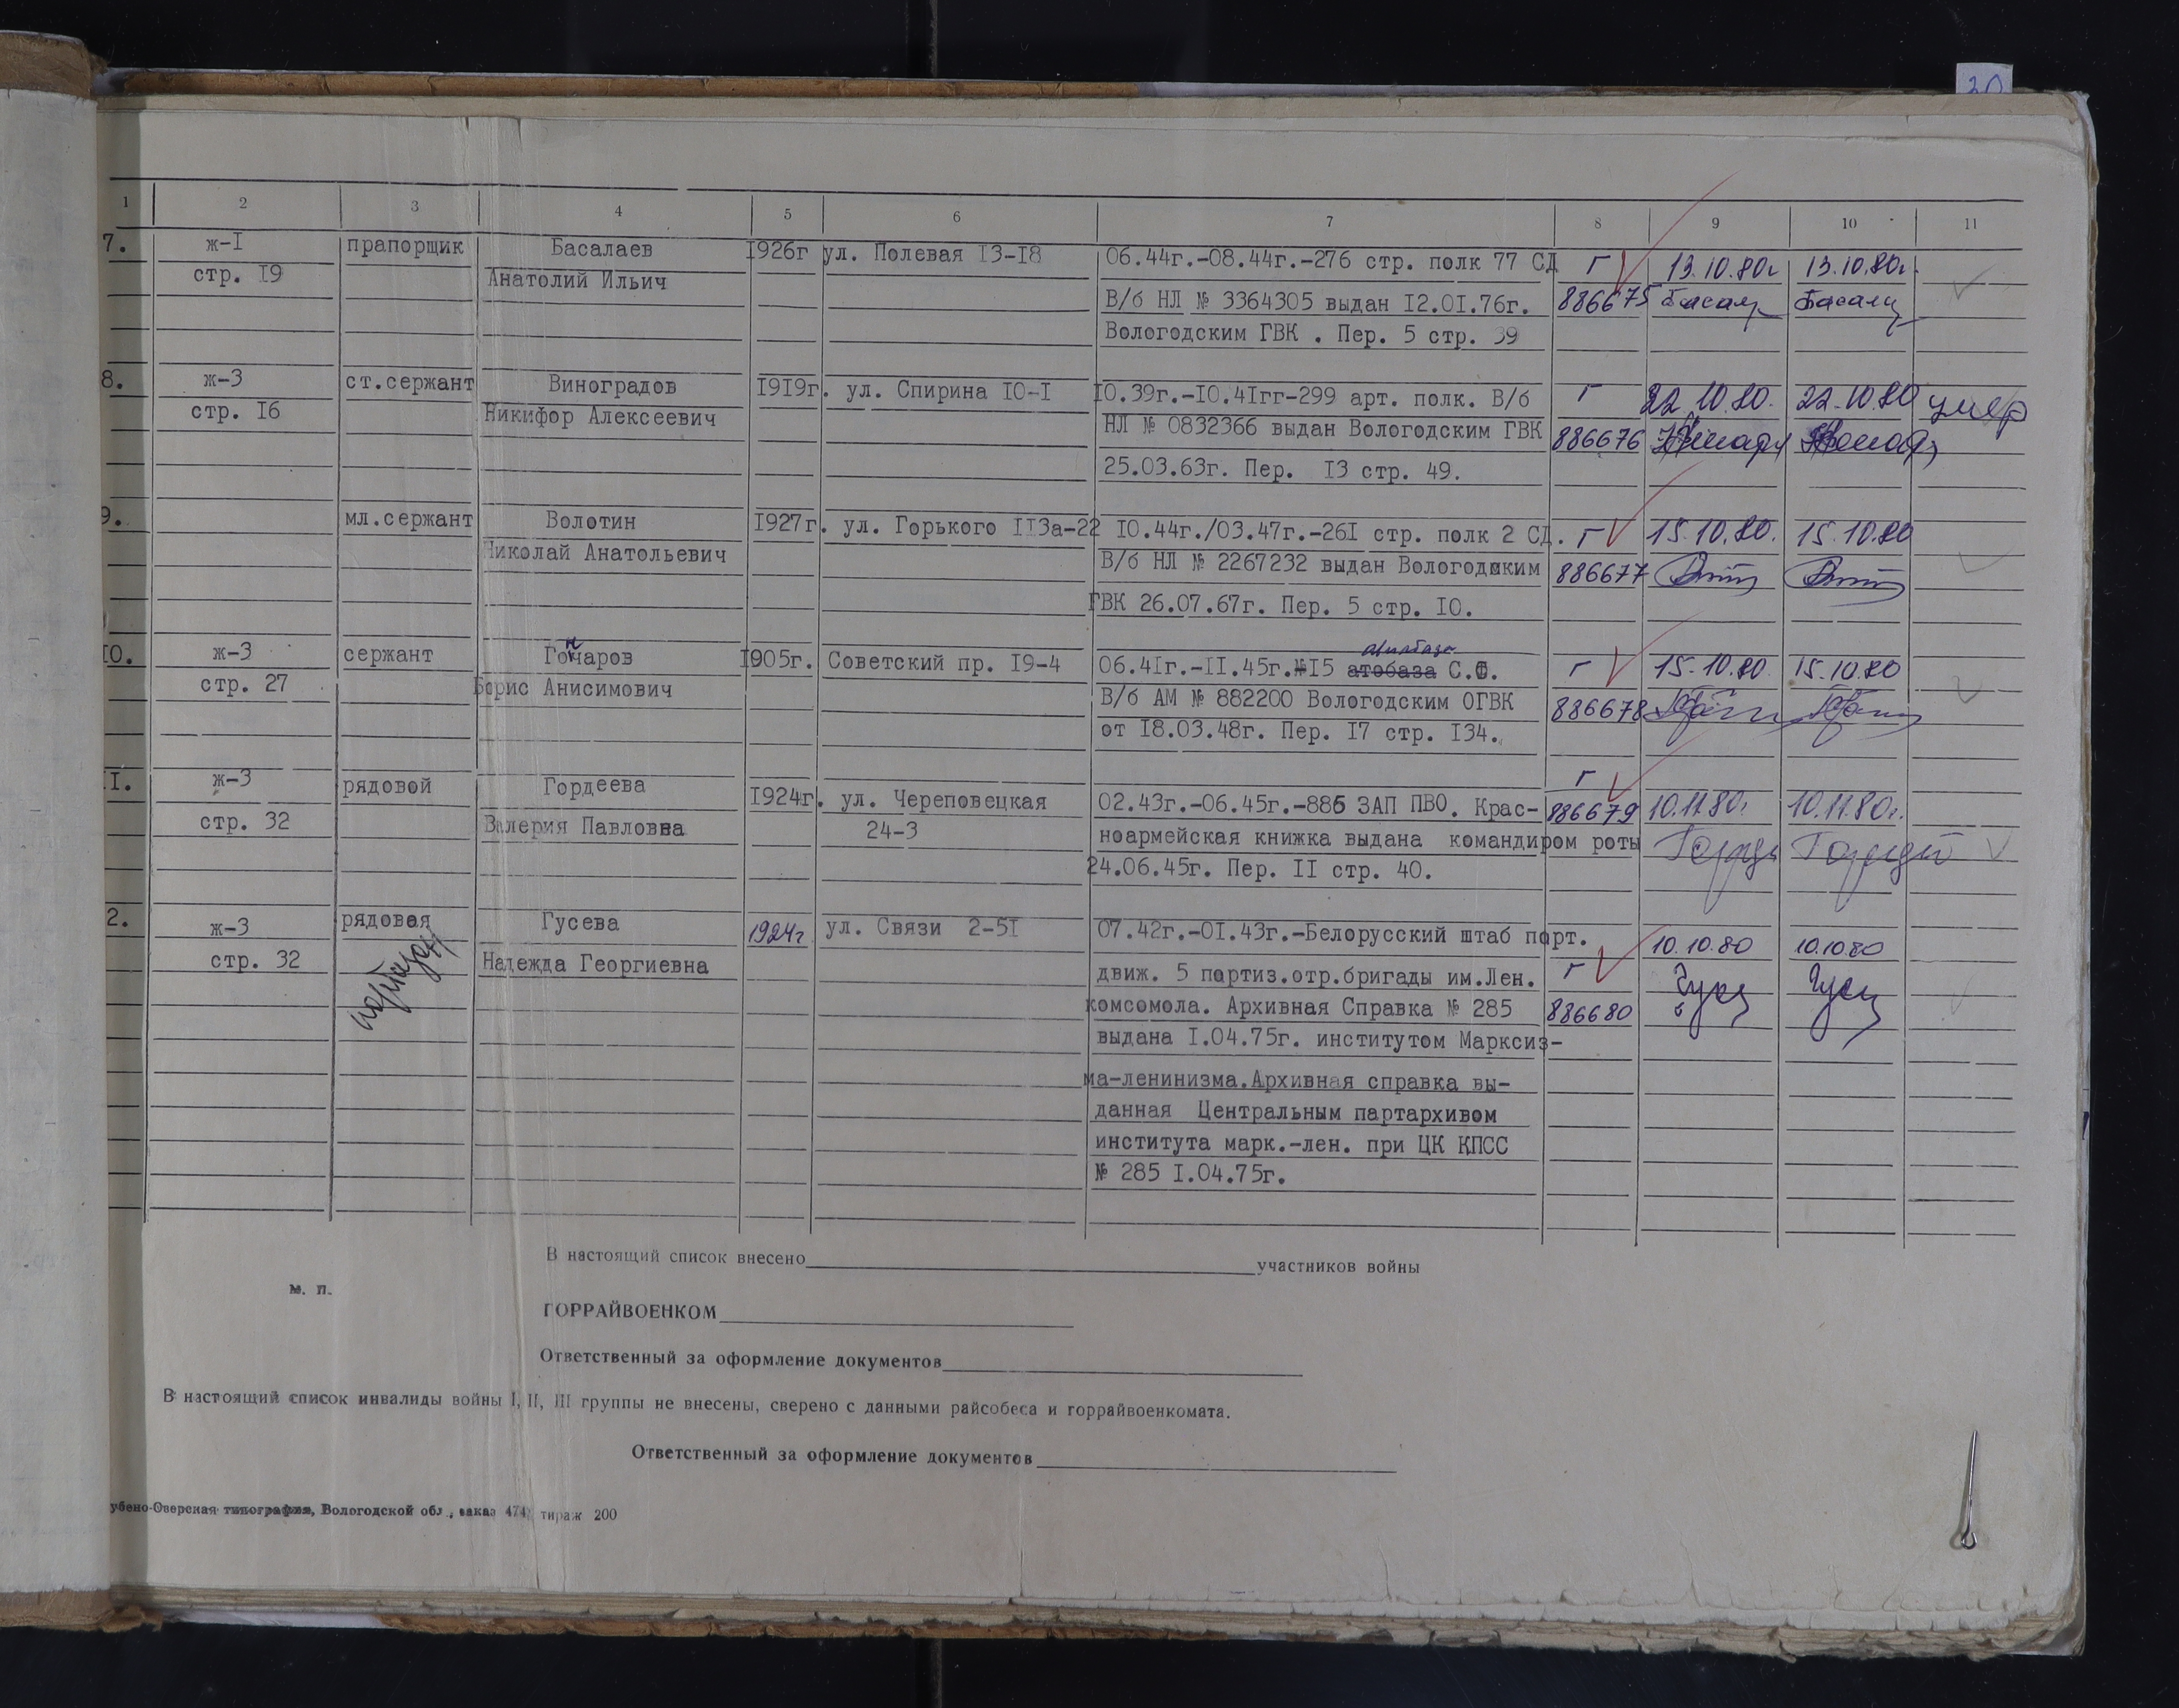 30
1 2 3 4 5 6 7 8 9 10 11
7. ж-I прапорщик Басалаев 1926г ул. Полевая I3-I8 06.44г.-08.44г.-276 стр. полк 77 СД г 13.10.80г 13.10.80г.
стр. I9 Анатолий Ильич В/б НЛ № 3364305 выдан I2.0I.76г. 886675 Басал Басалц
Вологодским ГВК . Пер. 5 стр. 39
8. ж-3 ст.сержант Виноградов I9I9г. ул. Спирина IO-I IO.39г.-IO.4Iгг-299 арт. полк. В/б г 22.10.80. 22.10.80 умер
стр. I6 Никифор Алексеевич НЛ № 0832366 выдан Вологодским ГВК 886676
25.03.63г. Пер. I3 стр. 49.
9. мл.сержант Волотин I927г. ул. Горького II3а-22 IO.44г./03.47г.-26I стр. полк 2 СД. г 15.10.80. 15.10.80
Николай Анатольевич В/б НЛ № 2267232 выдан Вологодским 886677
ГВК 26.07.67г. Пер. 5 стр. IO.
н автобаза
IO. ж-3 сержант Гочаров I905г. Советский пр. I9-4 06.4Iг.-II.45г.№I5 атобаза С.Ф. г 15.10.80 15.10.80
стр. 27 Борис Анисимович В/б АМ № 882200 Вологодским ОГВК 886678
от I8.03.48г. Пер. I7 стр. I34.
II. ж-3 рядовой Гордеева I924г. ул. Череповецкая 02.43г.-06.45г.-886 ЗАП ПВО. Крас- г 886679 10.11.80г. 10.11.80г.
стр. 32 Валерия Павловна 24-3 ноармейская книжка выдана командиром роты
24.06.45г. Пер. II стр. 40.
2. ж-3 рядовая Гусева 1924г ул. Связи 2-5I 07.42г.-0I.43г.-Белорусский штаб парт. 10.10.80 10.10.80
стр. 32 партизан Надежда Георгиевна движ. 5 партиз.отр.бригады им.Лен. г
комсомола. Архивная Справка № 285 886680
выдана I.04.75г. институтом Марксиз-
ма-ленинизма.Архивная справка вы-
данная Центральным партархивом
института марк.-лен. при ЦК КПСС
№ 285 I.04.75г.
В настоящий список внесено участников войны
м. п.
ГОРРАЙВОЕНКОМ
Ответственный за оформление документов
В настоящий список инвалиды войны I, II, III группы не внесены, сверено с данными райсобеса и горрайвоенкомата.
Ответственный за оформление документов
убено-Озерская типография, Вологодской обл., заказ 474, тираж 200